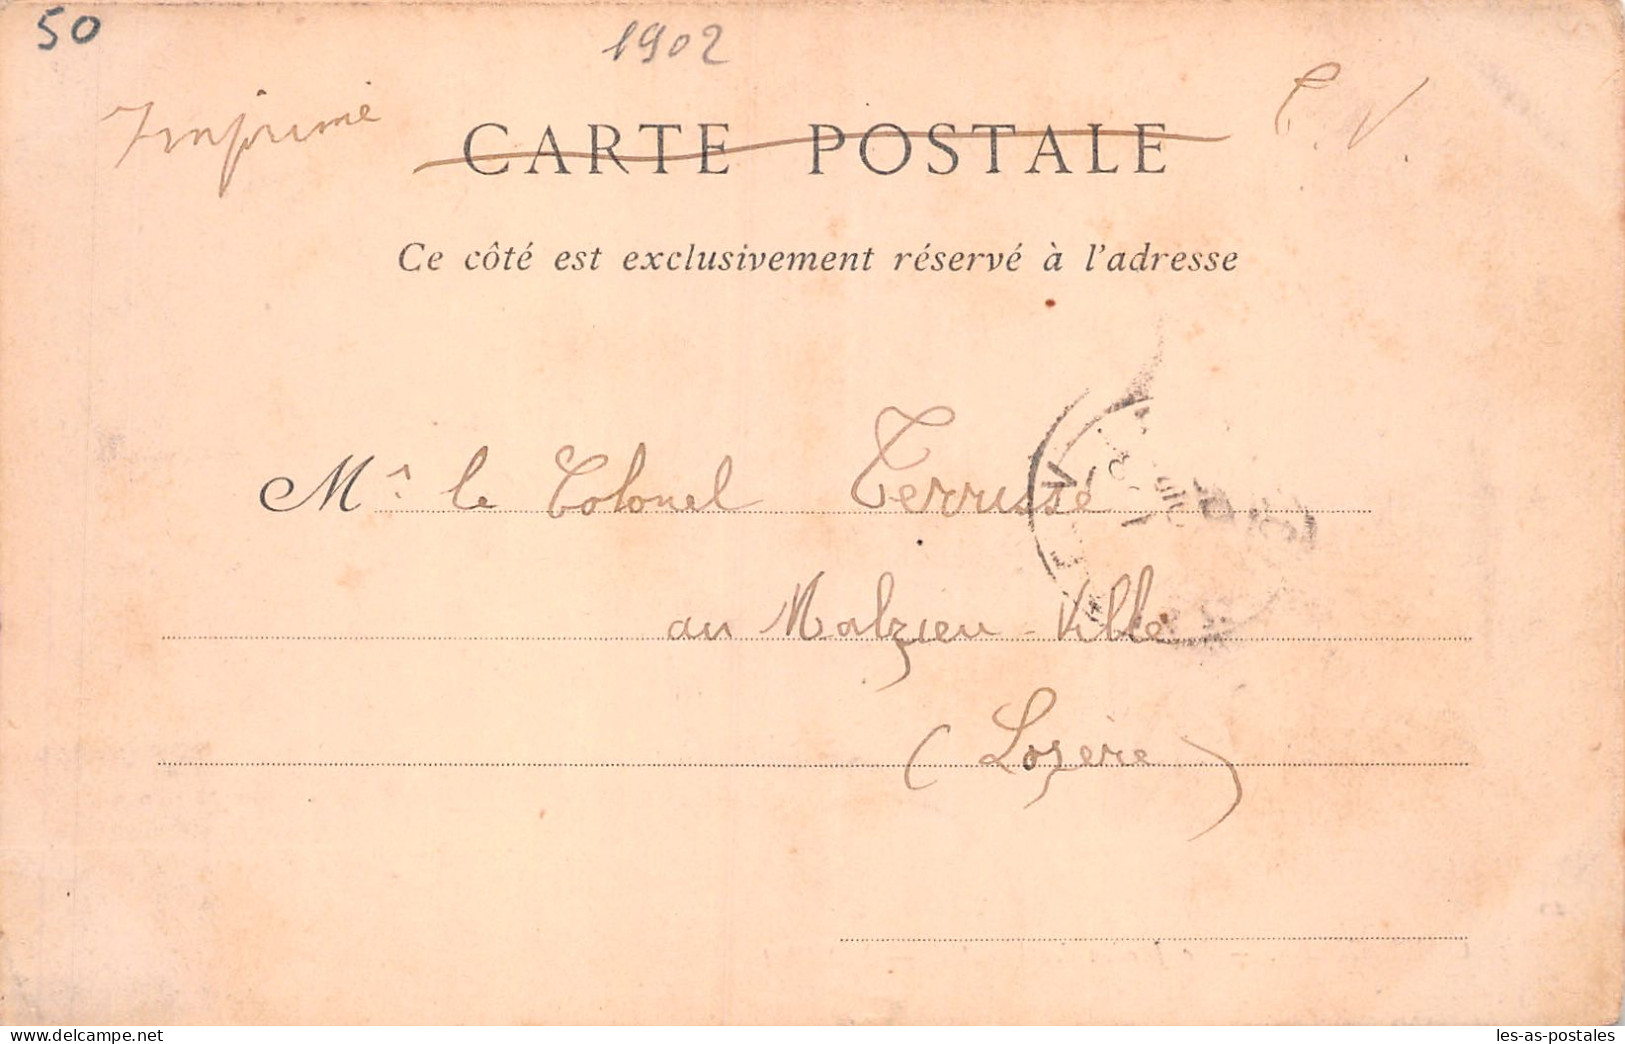 50
1902
Imprimé
C. V.
CARTE POSTALE
Ce côté est exclusivement réservé à l'adresse
Mr le Colonel Terrusse
au Malzieu-Ville
(Lozère)
les-as-postales